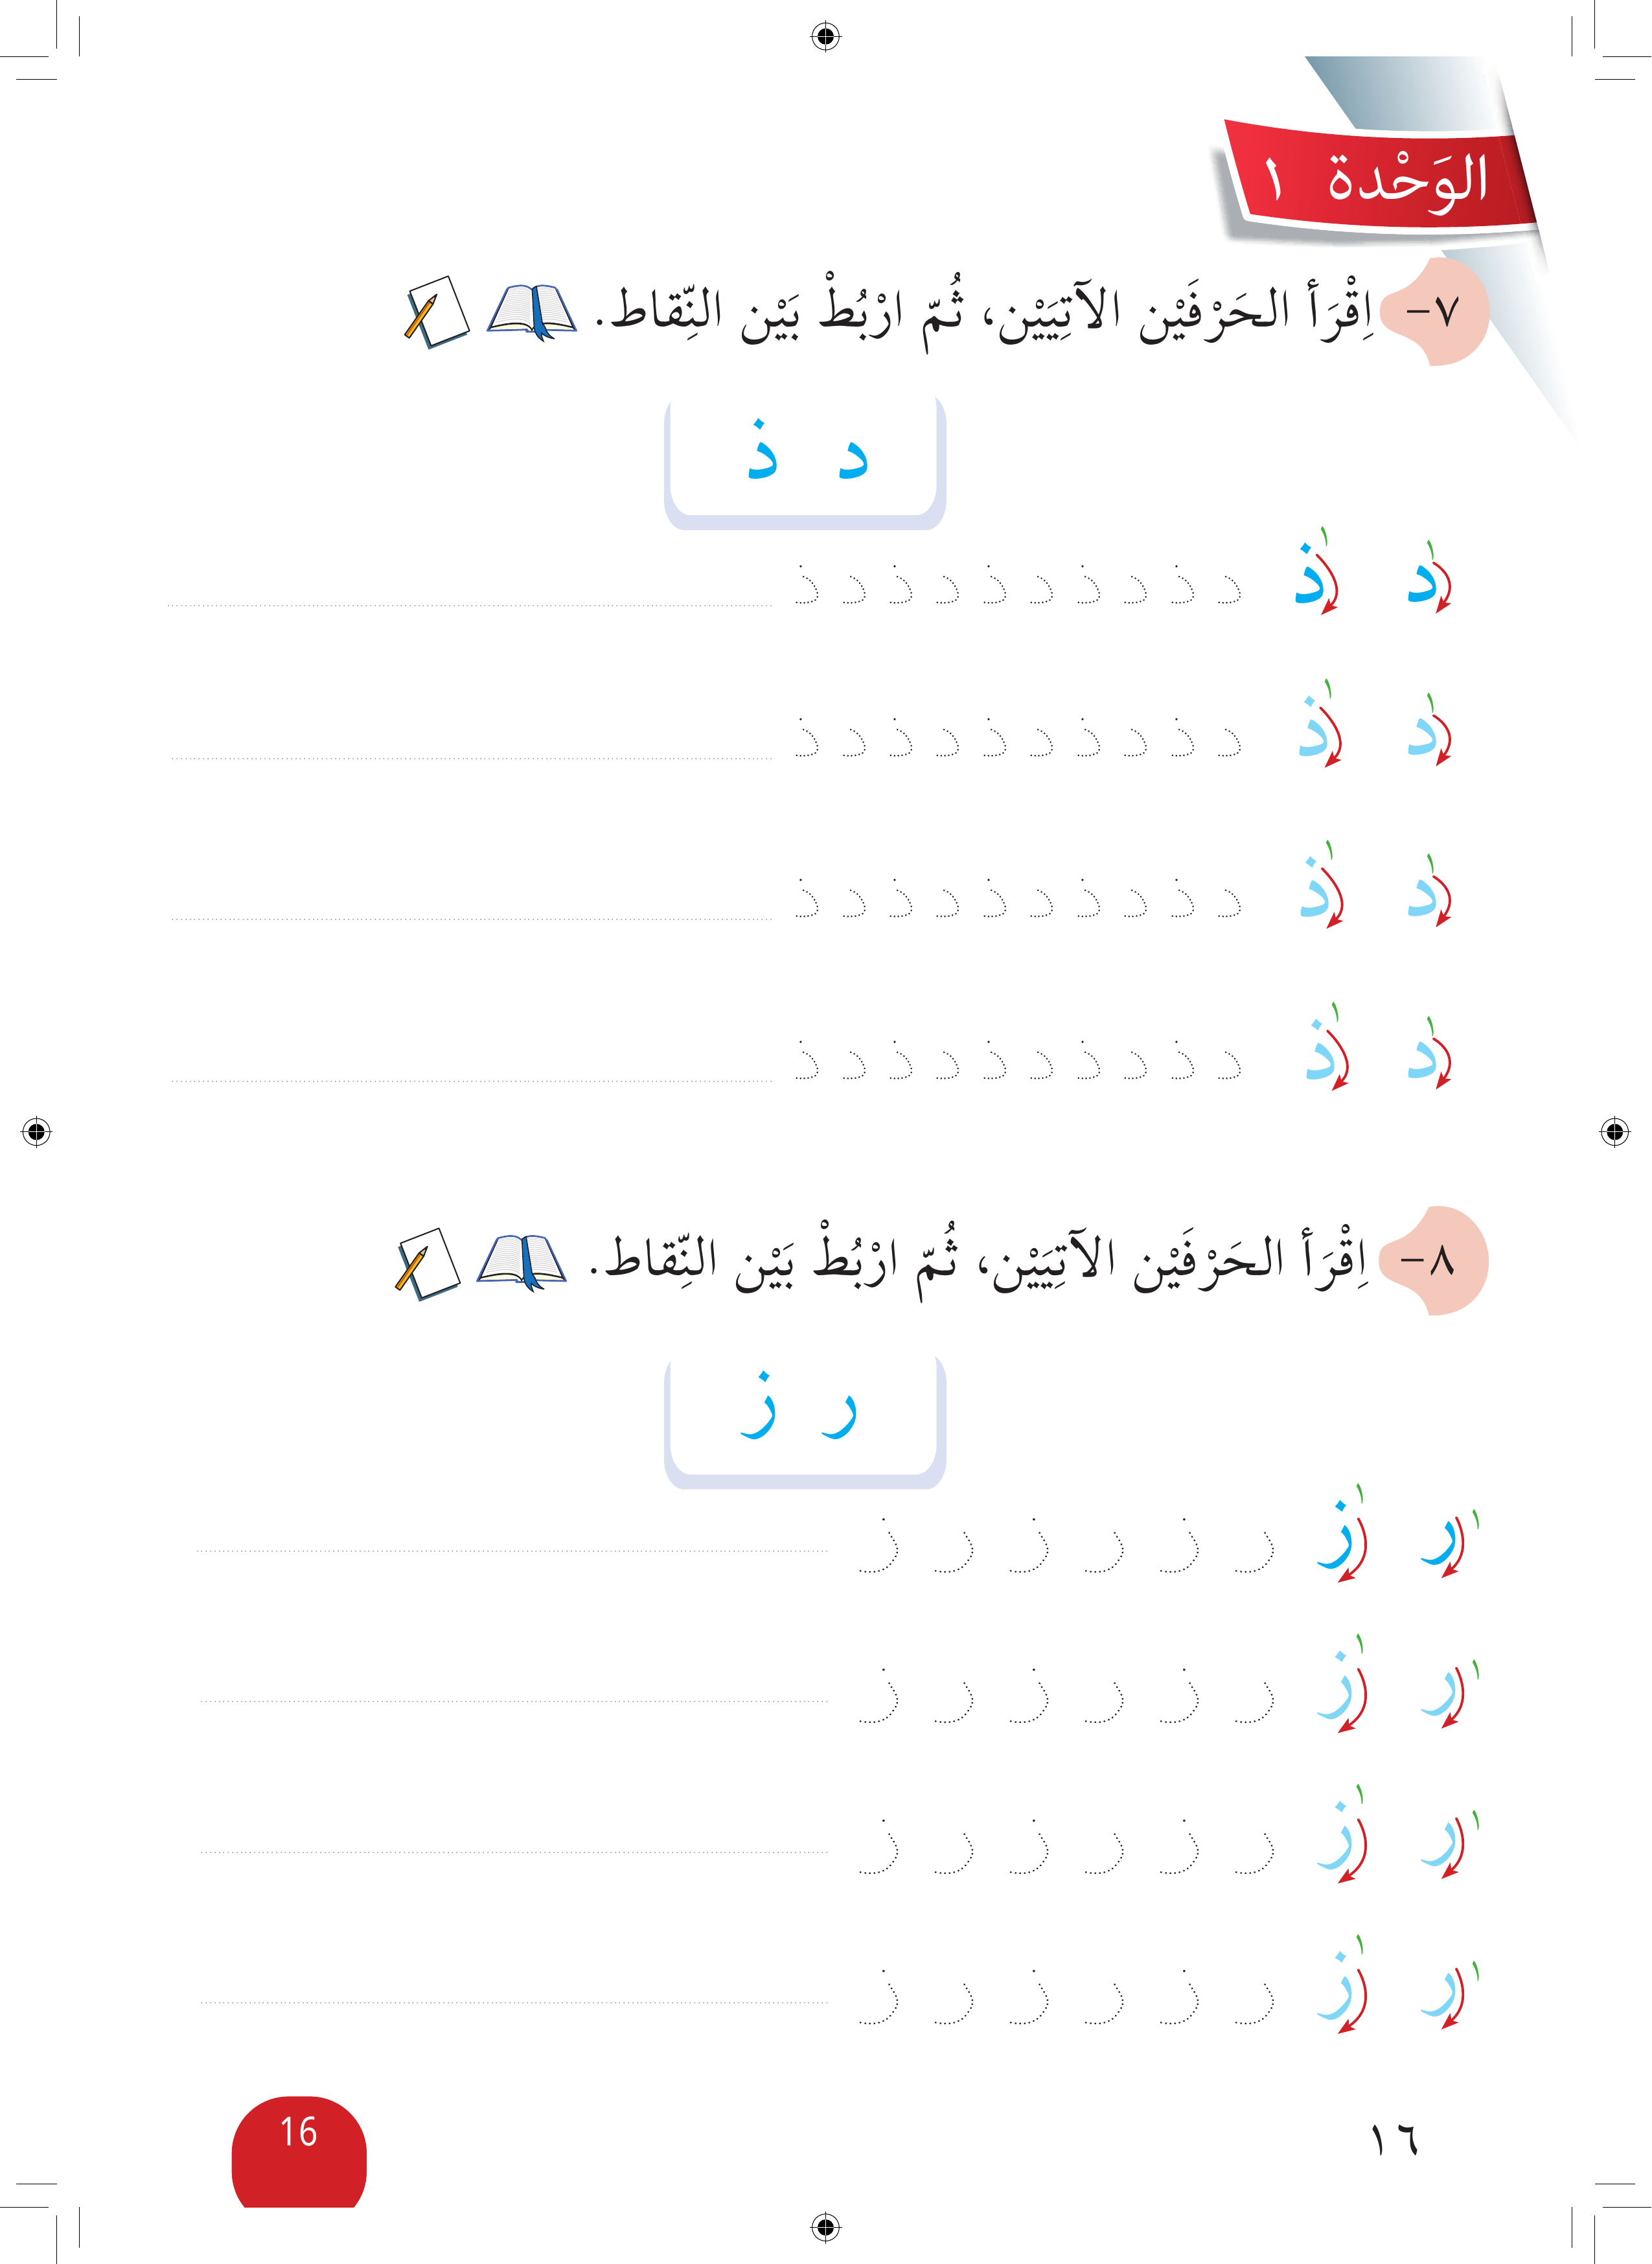 الوَحْدة ١
٧- اِقْرَأ الحَرْفَيْن الآتِيَيْن، ثُمّ ارْبُطْ بَيْن النِّقاط.
د ذ
١ د ١ ذ د ذ د ذ د ذ د ذ د ذ
١ د ١ ذ د ذ د ذ د ذ د ذ د ذ
١ د ١ ذ د ذ د ذ د ذ د ذ د ذ
١ د ١ ذ د ذ د ذ د ذ د ذ د ذ
٨- اِقْرَأ الحَرْفَيْن الآتِيَيْن، ثُمّ ارْبُطْ بَيْن النِّقاط.
ر ز
١ ر ١ ز ر ز ر ز ر ز
١ ر ١ ز ر ز ر ز ر ز
١ ر ١ ز ر ز ر ز ر ز
١ ر ١ ز ر ز ر ز ر ز
١٦
16